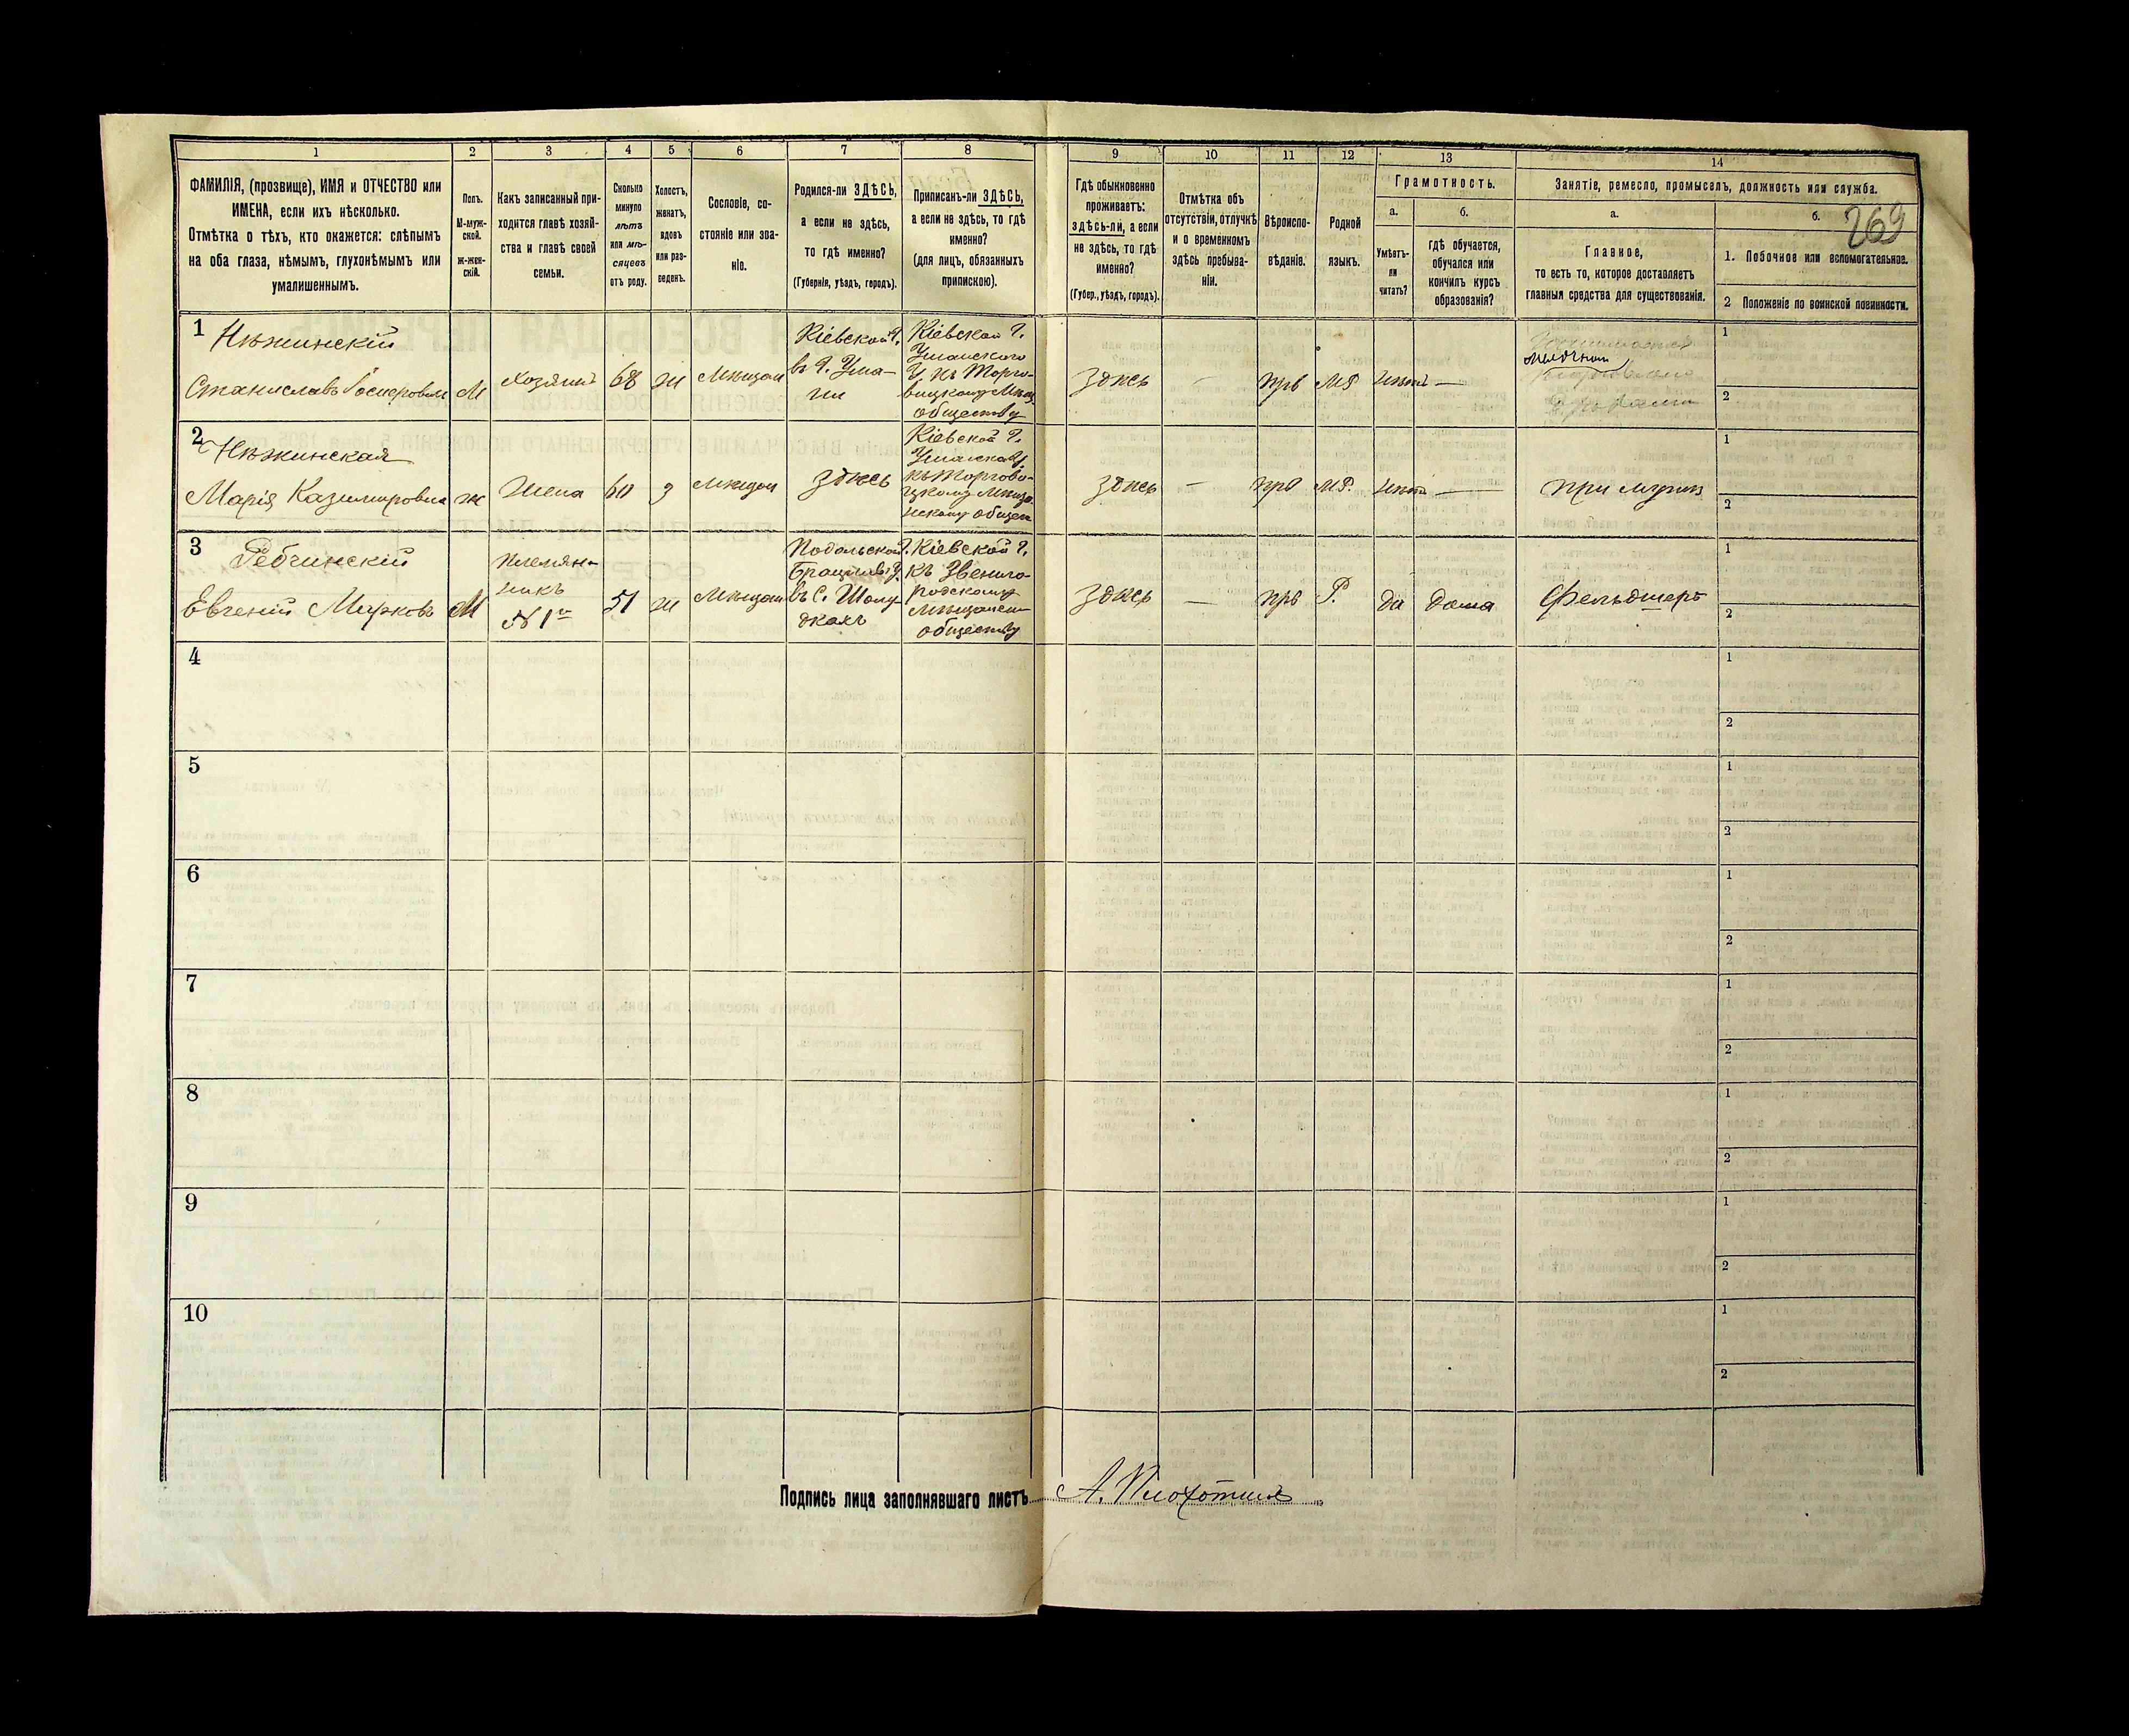 1 2 3 4 5 6 7 8 9 10 11 12 13 14
ФАМИЛІЯ, (прозвище), ИМЯ и ОТЧЕСТВО или
ИМЕНА, если ихъ нѣсколько.
Отмѣтка о тѣхъ, кто окажется: слѣпымъ
на оба глаза, нѣмымъ, глухонѣмымъ или
умалишеннымъ.
Полъ.
М-муж-
ской.
ж-жен-
скій.
Какъ записанный при-
ходится главѣ хозяй-
ства и главѣ своей
семьи.
Сколько
минуло
лѣтъ
или мѣ-
сяцевъ
отъ роду.
Холостъ,
женатъ,
вдовъ
или раз-
веденъ.
Сословіе, со-
стояніе или зва-
ніе.
Родился-ли ЗДѢСЬ,
а если не здѣсь,
то гдѣ именно?
(Губернія, уѣздъ, городъ).
Приписанъ-ли ЗДѢСЬ,
а если не здѣсь, то гдѣ
именно?
(для лицъ, обязанныхъ
припискою).
Гдѣ обыкновенно
проживаетъ:
здѣсь-ли, а если
не здѣсь, то гдѣ
именно?
(Губер., уѣздъ, городъ).
Отмѣтка объ
отсутствіи, отлучкѣ
и о временномъ
здѣсь пребыва-
ніи.
Вѣроиспо-
вѣданіе.
Родной
языкъ.
Грамотность.
а.
Умѣетъ-
ли
читать?
б.
гдѣ обучается,
обучался или
кончилъ курсъ
образованія?
Занятіе, ремесло, промыселъ, должность или служба.
а.
Главное,
то есть то, которое доставляетъ
главныя средства для существованія.
б.
269
1. Побочное или вспомогательное.
2 Положеніе по воинской повинности.
1 Нѣжинскій
Станиславъ
М
Хозяинъ
68
ж
Мѣщан
Кіевской г.
въ г. Ума-
ни
Кіевской г.
Уманского
У къ Торго-
вицкому Мѣщ.
обществу
здѣсь
—
прв
МР
нѣтъ —
1
2
2 Нѣжинская
Марія Казимировна
ж
Жена
60
з
Мѣщан
здѣсь
Кіевской г.
къ Торгови-
цкому Мѣща
нскому общес
здѣсь
—
прв
МР.
нѣтъ —
при мужѣ
1
2
3 Ребчинскій
Евгеній Марковъ
М
племян-
никъ
№ 1го
51
ж
Мѣщан
Подольской г.
Брацлав. У.
въ с.
Кіевской г.
къ Звениго-
родскому
Мѣщанск
обществу
здѣсь
—
прв
Р.
да
дома
Фельдшеръ
1
2
4
1
2
5
1
2
6
1
2
7
1
2
8
1
2
9
1
2
10
1
2
Подпись лица заполнявшаго листъ